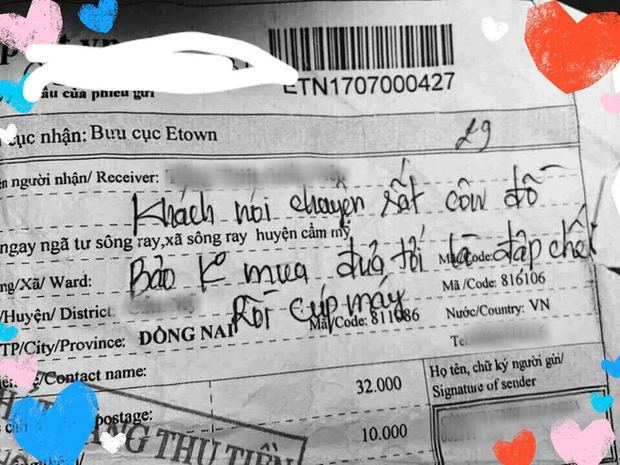 ETN1707000427
ẩu của phiếu gửi
cục nhận: Bưu cục Etown
29
ện người nhận/ Receiver:
Khách nói chuyện rất côn đồ
ngay ngã tư sông ray,xã sông ray huyện cẩm mỹ
Bảo K mua đưa tới là đập chết
ng/Xã/ Ward: Mã/Code: 816106
Rồi cúp máy
/Huyện/ District: Mã/Code: 811086 Mã /Code:
TP/City/Province: ĐỒNG NAI Nước/Country: VN
Tel
/Contact name: 32.000 Họ tên, chữ ký người gửi/
Signature of sender
postage: 10.000
NG THU TIỀN